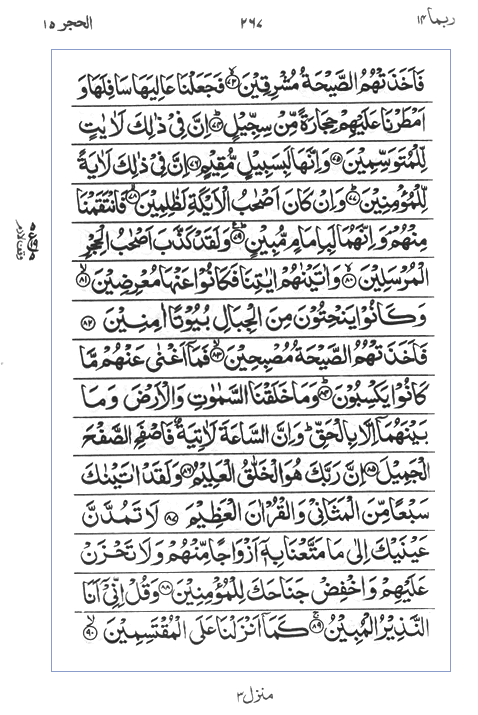 ربما ۱۴
۲۶۷
الحجر ۱۵
فَاَخَذَتْهُمُ الصَّيْحَةُ مُشْرِقِيْنَ ۙ﴿۷۳﴾ فَجَعَلْنَا عَالِيَهَا سَافِلَهَا وَ
اَمْطَرْنَا عَلَيْهِمْ حِجَارَةً مِّنْ سِجِّيْلٍ ؕ﴿۷۴﴾ اِنَّ فِیْ ذٰلِكَ لَاٰيٰتٍ
لِّلْمُتَوَسِّمِيْنَ ﴿۷۵﴾ وَاِنَّهَا لَبِسَبِيْلٍ مُّقِيْمٍ ﴿۷۶﴾ اِنَّ فِیْ ذٰلِكَ لَاٰيَةً
لِّلْمُؤْمِنِيْنَ ؕ﴿۷۷﴾ وَاِنْ كَانَ اَصْحٰبُ الْاَيْكَةِ لَظٰلِمِيْنَ ۙ﴿۷۸﴾ فَانْتَقَمْنَا
مِنْهُمْ ۘ وَاِنَّهُمَا لَبِاِمَامٍ مُّبِيْنٍ ؕ﴿۷۹﴾ وَلَقَدْ كَذَّبَ اَصْحٰبُ الْحِجْرِ
الْمُرْسَلِيْنَ ۙ﴿۸۰﴾ وَاٰتَيْنٰهُمْ اٰيٰتِنَا فَكَانُوْا عَنْهَا مُعْرِضِيْنَ ۙ﴿۸۱﴾
وَكَانُوْا يَنْحِتُوْنَ مِنَ الْجِبَالِ بُيُوْتًا اٰمِنِيْنَ ﴿۸۲﴾
فَاَخَذَتْهُمُ الصَّيْحَةُ مُصْبِحِيْنَ ۙ﴿۸۳﴾ فَمَاۤ اَغْنٰى عَنْهُمْ مَّا
كَانُوْا يَكْسِبُوْنَ ؕ﴿۸۴﴾ وَمَا خَلَقْنَا السَّمٰوٰتِ وَالْاَرْضَ وَمَا
بَيْنَهُمَاۤ اِلَّا بِالْحَقِّ ؕ وَاِنَّ السَّاعَةَ لَاٰتِيَةٌ فَاصْفَحِ الصَّفْحَ
الْجَمِيْلَ ﴿۸۵﴾ اِنَّ رَبَّكَ هُوَ الْخَلّٰقُ الْعَلِيْمُ ﴿۸۶﴾ وَلَقَدْ اٰتَيْنٰكَ
سَبْعًا مِّنَ الْمَثَانِیْ وَالْقُرْاٰنَ الْعَظِيْمَ ﴿۸۷﴾ لَا تَمُدَّنَّ
عَيْنَيْكَ اِلٰى مَا مَتَّعْنَا بِهٖۤ اَزْوَاجًا مِّنْهُمْ وَلَا تَحْزَنْ
عَلَيْهِمْ وَاخْفِضْ جَنَاحَكَ لِلْمُؤْمِنِيْنَ ﴿۸۸﴾ وَقُلْ اِنِّیْۤ اَنَا
النَّذِيْرُ الْمُبِيْنُ ۚ﴿۸۹﴾ كَمَاۤ اَنْزَلْنَا عَلَى الْمُقْتَسِمِيْنَ ۙ﴿۹۰﴾
منزل ۳